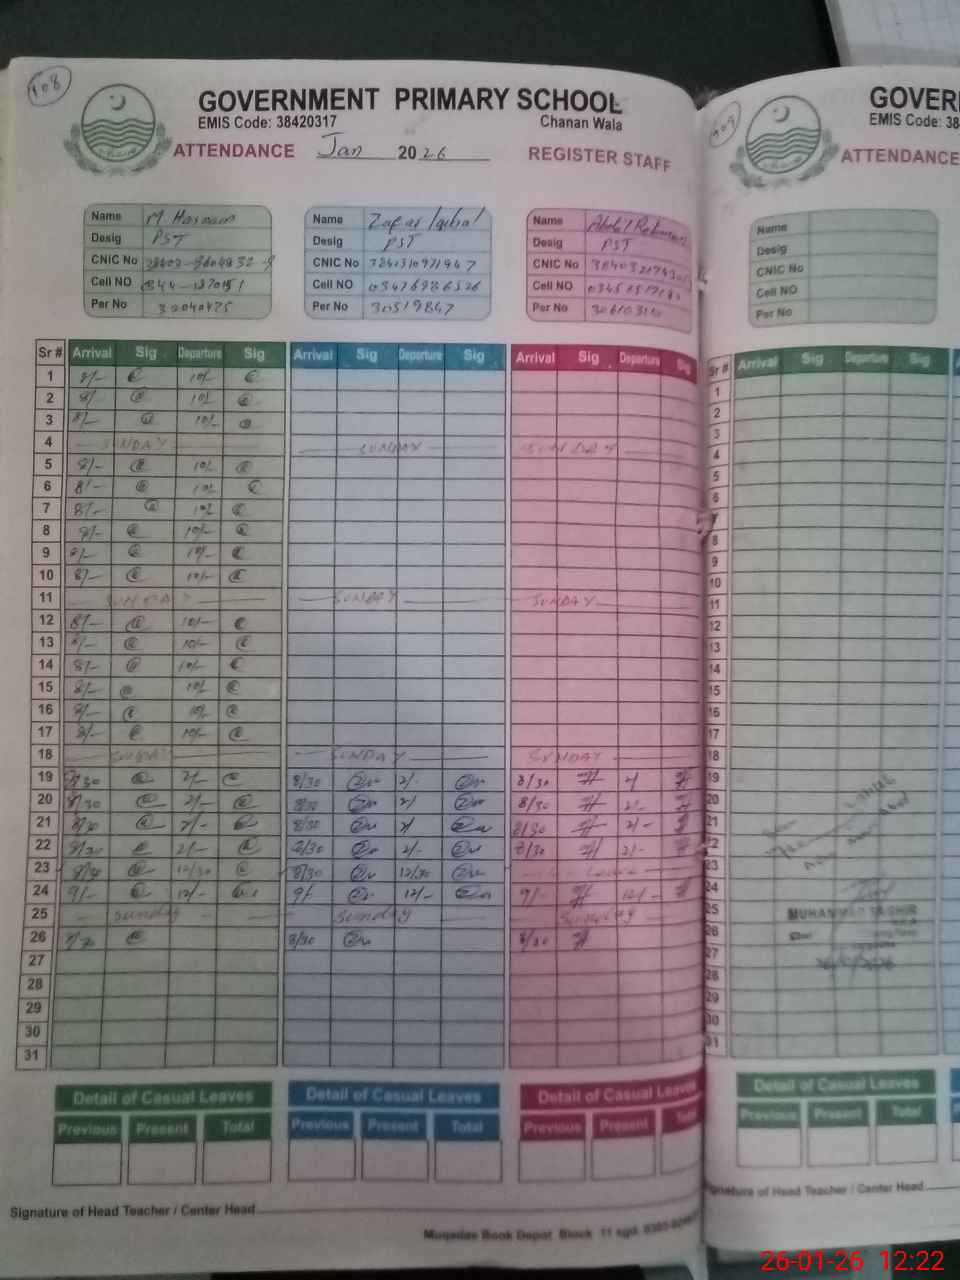 408
GOVERNMENT PRIMARY SCHOOL
EMIS Code: 38420317 Chanan Wala
ATTENDANCE Jan 2026 REGISTER STAFF
Name M Hasnain
Desig PST
CNIC No
Cell NO
Per No
Name Zafar Iqbal
Desig PST
CNIC No 3840310971947
Cell NO 03476986526
Per No 30519867
Name Abdul Rehman
Desig PST
CNIC No
Cell NO
Per No
Sr # Arrival Sig Departure Sig Arrival Sig Departure Sig Arrival Sig Departure Sig
1 8/- 10/-
2 8/- 10/-
3 8/- 10/-
4 SUNDAY SUNDAY SUNDAY
5 8/- 10/-
6 8/- 10/-
7 8/- 10/-
8 8/- 10/-
9 8/- 10/-
10 8/- 10/-
11 SUNDAY SUNDAY SUNDAY
12 8/- 10/-
13 8/- 10/-
14 8/- 10/-
15 8/- 10/-
16 8/- 10/-
17 8/- 10/-
18 SUNDAY SUNDAY SUNDAY
19 8/30 2/- 8/30 2/- 8/30 2/
20 8/30 2/- 8/30 2/ 8/30 2/-
21 8/30 2/- 8/30 2/ 8/30 2/-
22 8/30 2/- 8/30 2/- 8/30 2/-
23 8/30 12/30 8/30 12/30 Leave
24 9/- 12/- 9/ 12/- 9/- 12/-
25 Sunday Sunday Sunday
26 8/30 8/30 8/30
27
28
29
30
31
Detail of Casual Leaves Detail of Casual Leaves Detail of Casual Leaves
Previous Present Total Previous Present Total Previous Present Total
Signature of Head Teacher / Center Head
Muqadas Book Depot Block 11 sgd.
409
GOVER
EMIS Code: 38
ATTENDANCE
Name
Desig
CNIC No
Cell NO
Per No
Sr # Arrival Sig Departure Sig
1
2
3
4
5
6
7
8
9
10
11
12
13
14
15
16
17
18
19
20
21
22
23
24
25
MUHAMMAD BASHIR
26
27
28
29
30
31
Detail of Casual Leaves
Previous Present Total
Signature of Head Teacher / Center Head
26-01-26 12:22